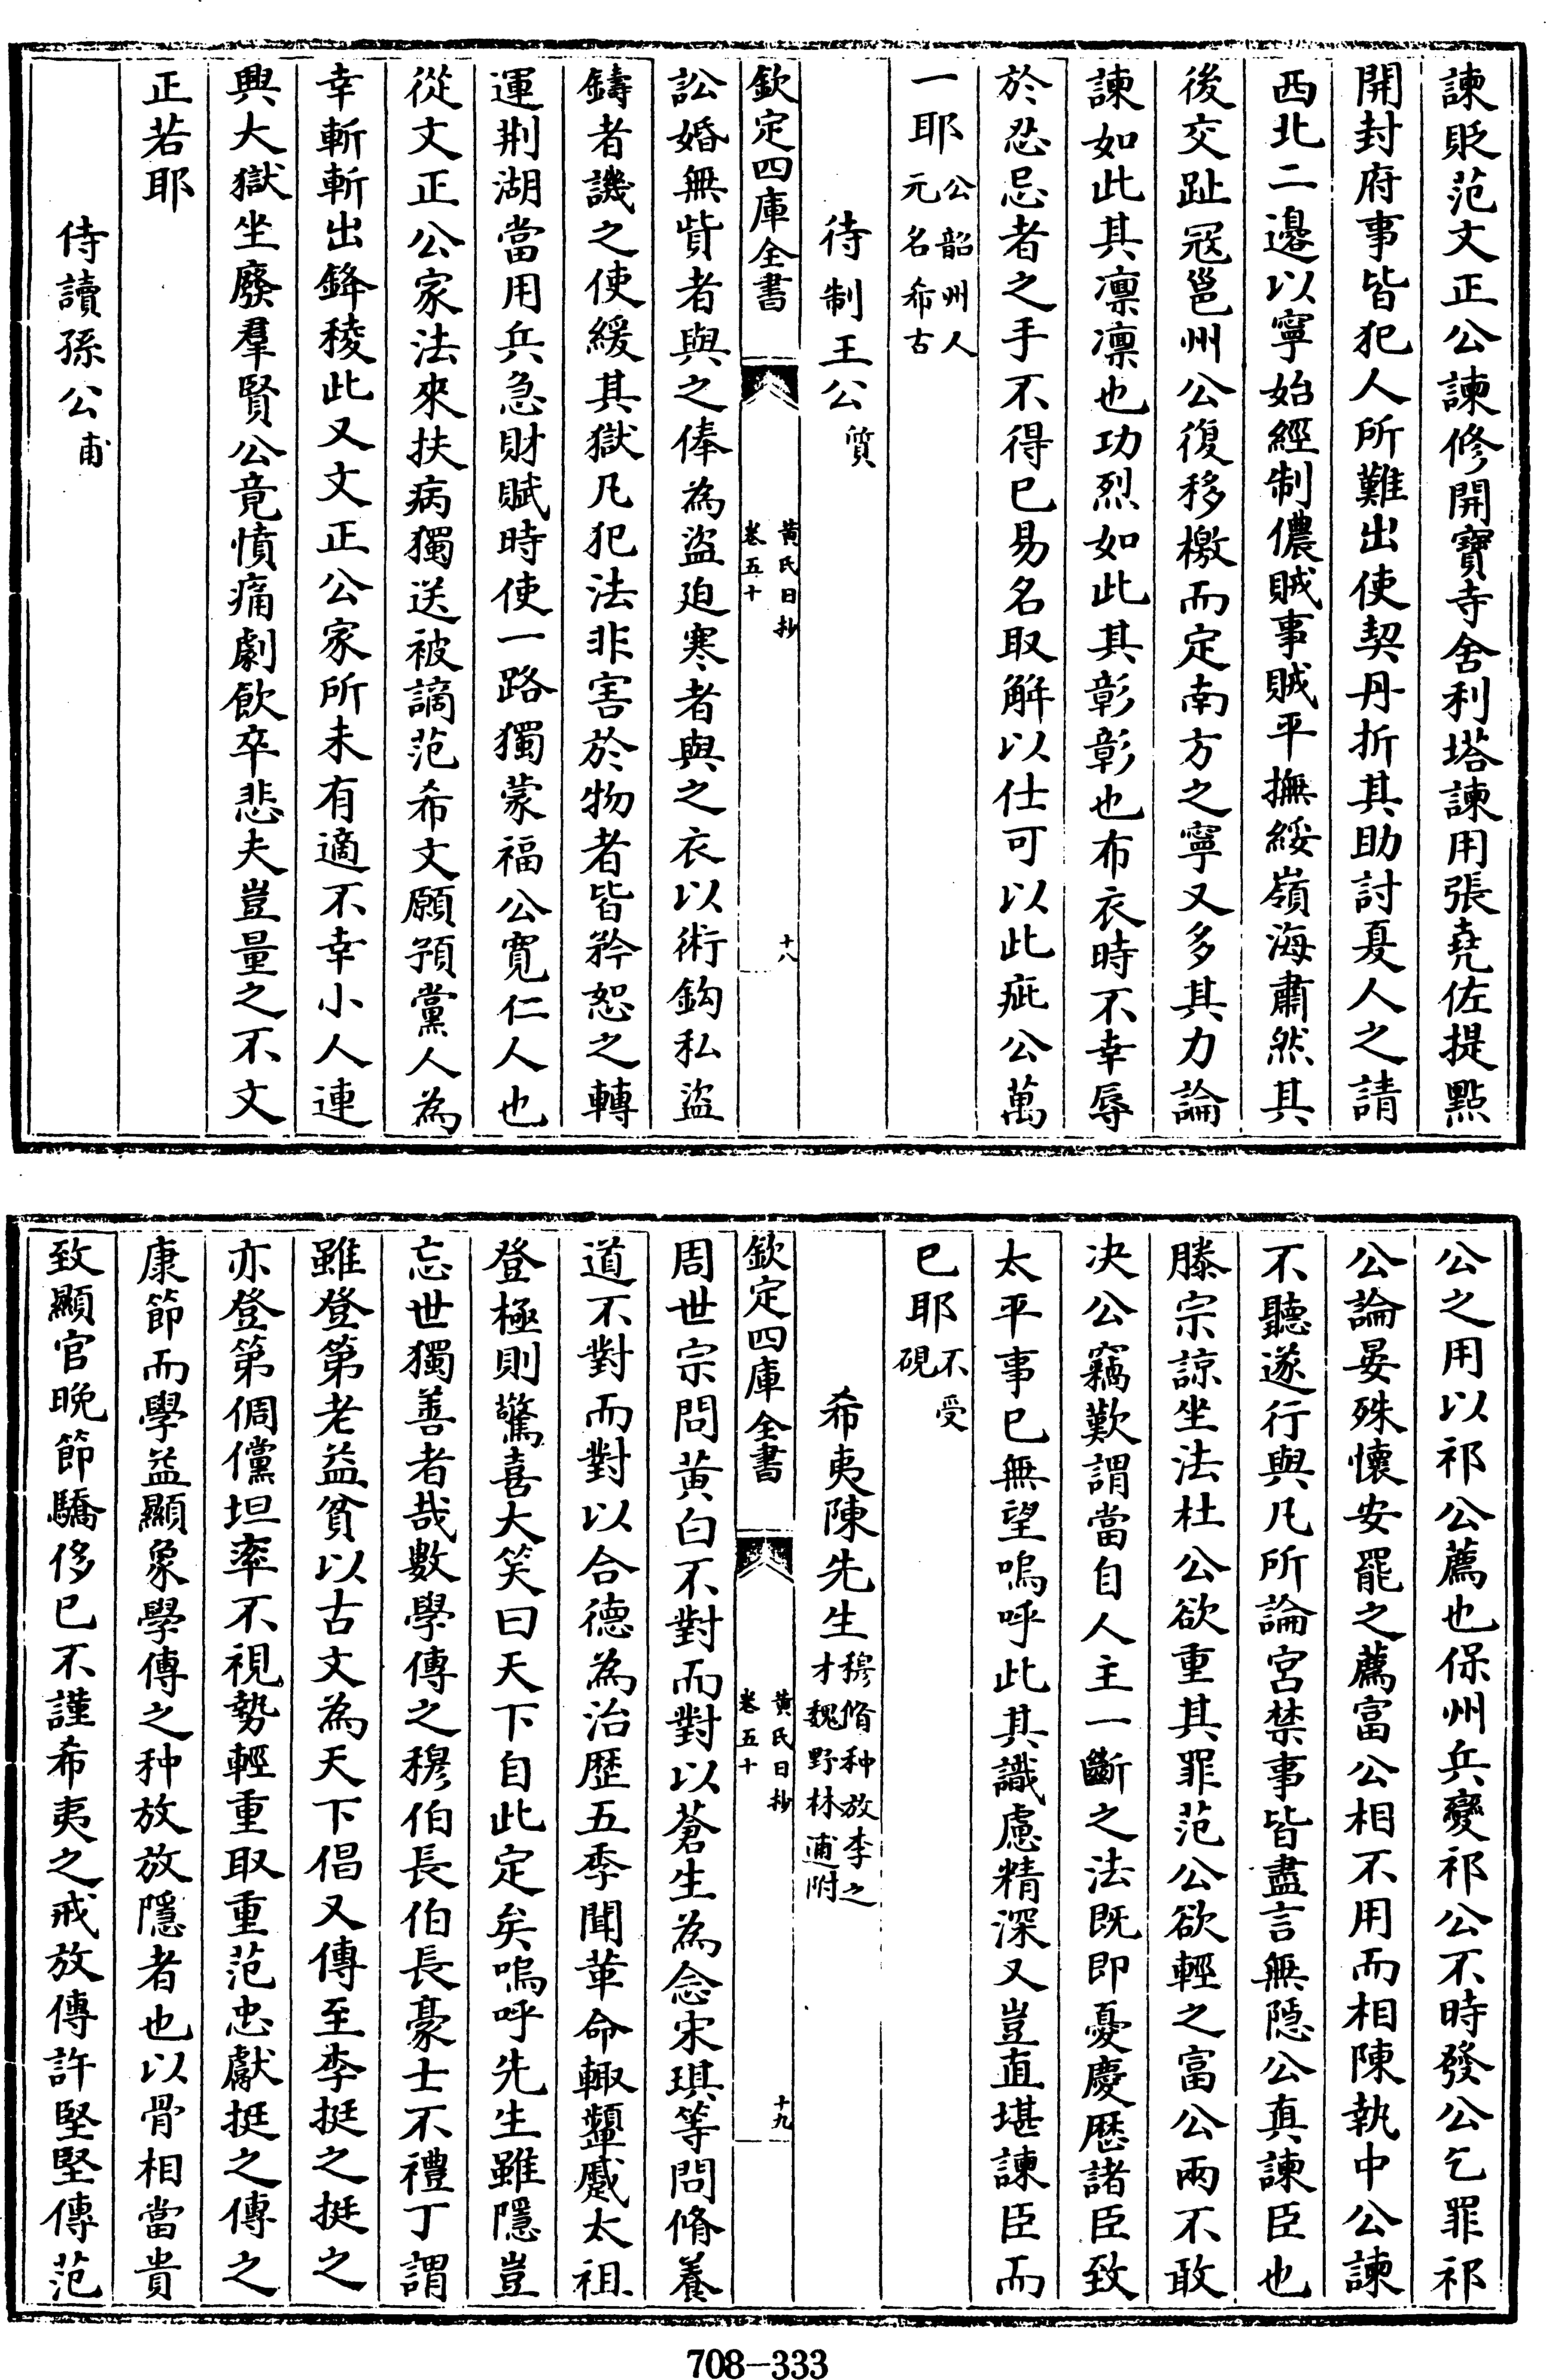 諫貶范文正公諫修開寶寺舍利塔諫用張堯佐提點
開封府事皆犯人所難出使契丹折其助討夏人之請
西北二邊以寧始經制儂賊事賊平撫綏嶺海肅然其
後交趾冦邕州公復移檄而定南方之寧又多其力論
諫如此其凛凛也功烈如此其彰彰也布衣時不幸辱
於忍忌者之手不得已易名取解以仕可以此疵公萬
一耶公韶州人元名希古
待制王公質
欽定四庫全書
黃氏日抄
卷五十
十八
訟婚無貲者與之俸為盜廹寒者與之衣以術鈎私盜
鑄者譏之使緩其獄凡犯法非害於物者皆矜恕之轉
運荆湖當用兵急財賦時使一路獨蒙福公寛仁人也
從文正公家法來扶病獨送被謫范希文願預黨人為
幸斬斬出鋒稜此又文正公家所未有適不幸小人連
興大獄坐廢羣賢公竟憤痛劇飲卒悲夫豈量之不文
正若耶
侍讀孫公甫
公之用以祁公薦也保州兵變祁公不時發公乞罪祁
公論晏殊懷安罷之薦富公相不用而相陳執中公諫
不聽遂行與凡所論宮禁事皆盡言無隠公真諫臣也
滕宗諒坐法杜公欲重其罪范公欲輕之富公兩不敢
决公竊歎謂當自人主一斷之法既即憂慶厯諸臣致
太平事已無望嗚呼此其識慮精深又豈直堪諫臣而
已耶不受硯
希夷陳先生穆脩种放李之才魏野林逋附
欽定四庫全書
黃氏日抄
卷五十
十九
周世宗問黃白不對而對以蒼生為念宋琪等問脩養
道不對而對以合德為治歴五季聞革命輙顰蹙太祖
登極則驚喜大笑曰天下自此定矣嗚呼先生雖隱豈
忘世獨善者哉數學傳之穆伯長伯長豪士不禮丁謂
雖登第老益貧以古文為天下倡又傳至李挺之挺之
亦登第倜儻坦率不視勢輕重取重范忠獻挺之傳之
康節而學益顯象學傳之种放放隱者也以骨相當貴
致顯官晩節驕侈已不謹希夷之戒放傳許堅堅傳范
708-333